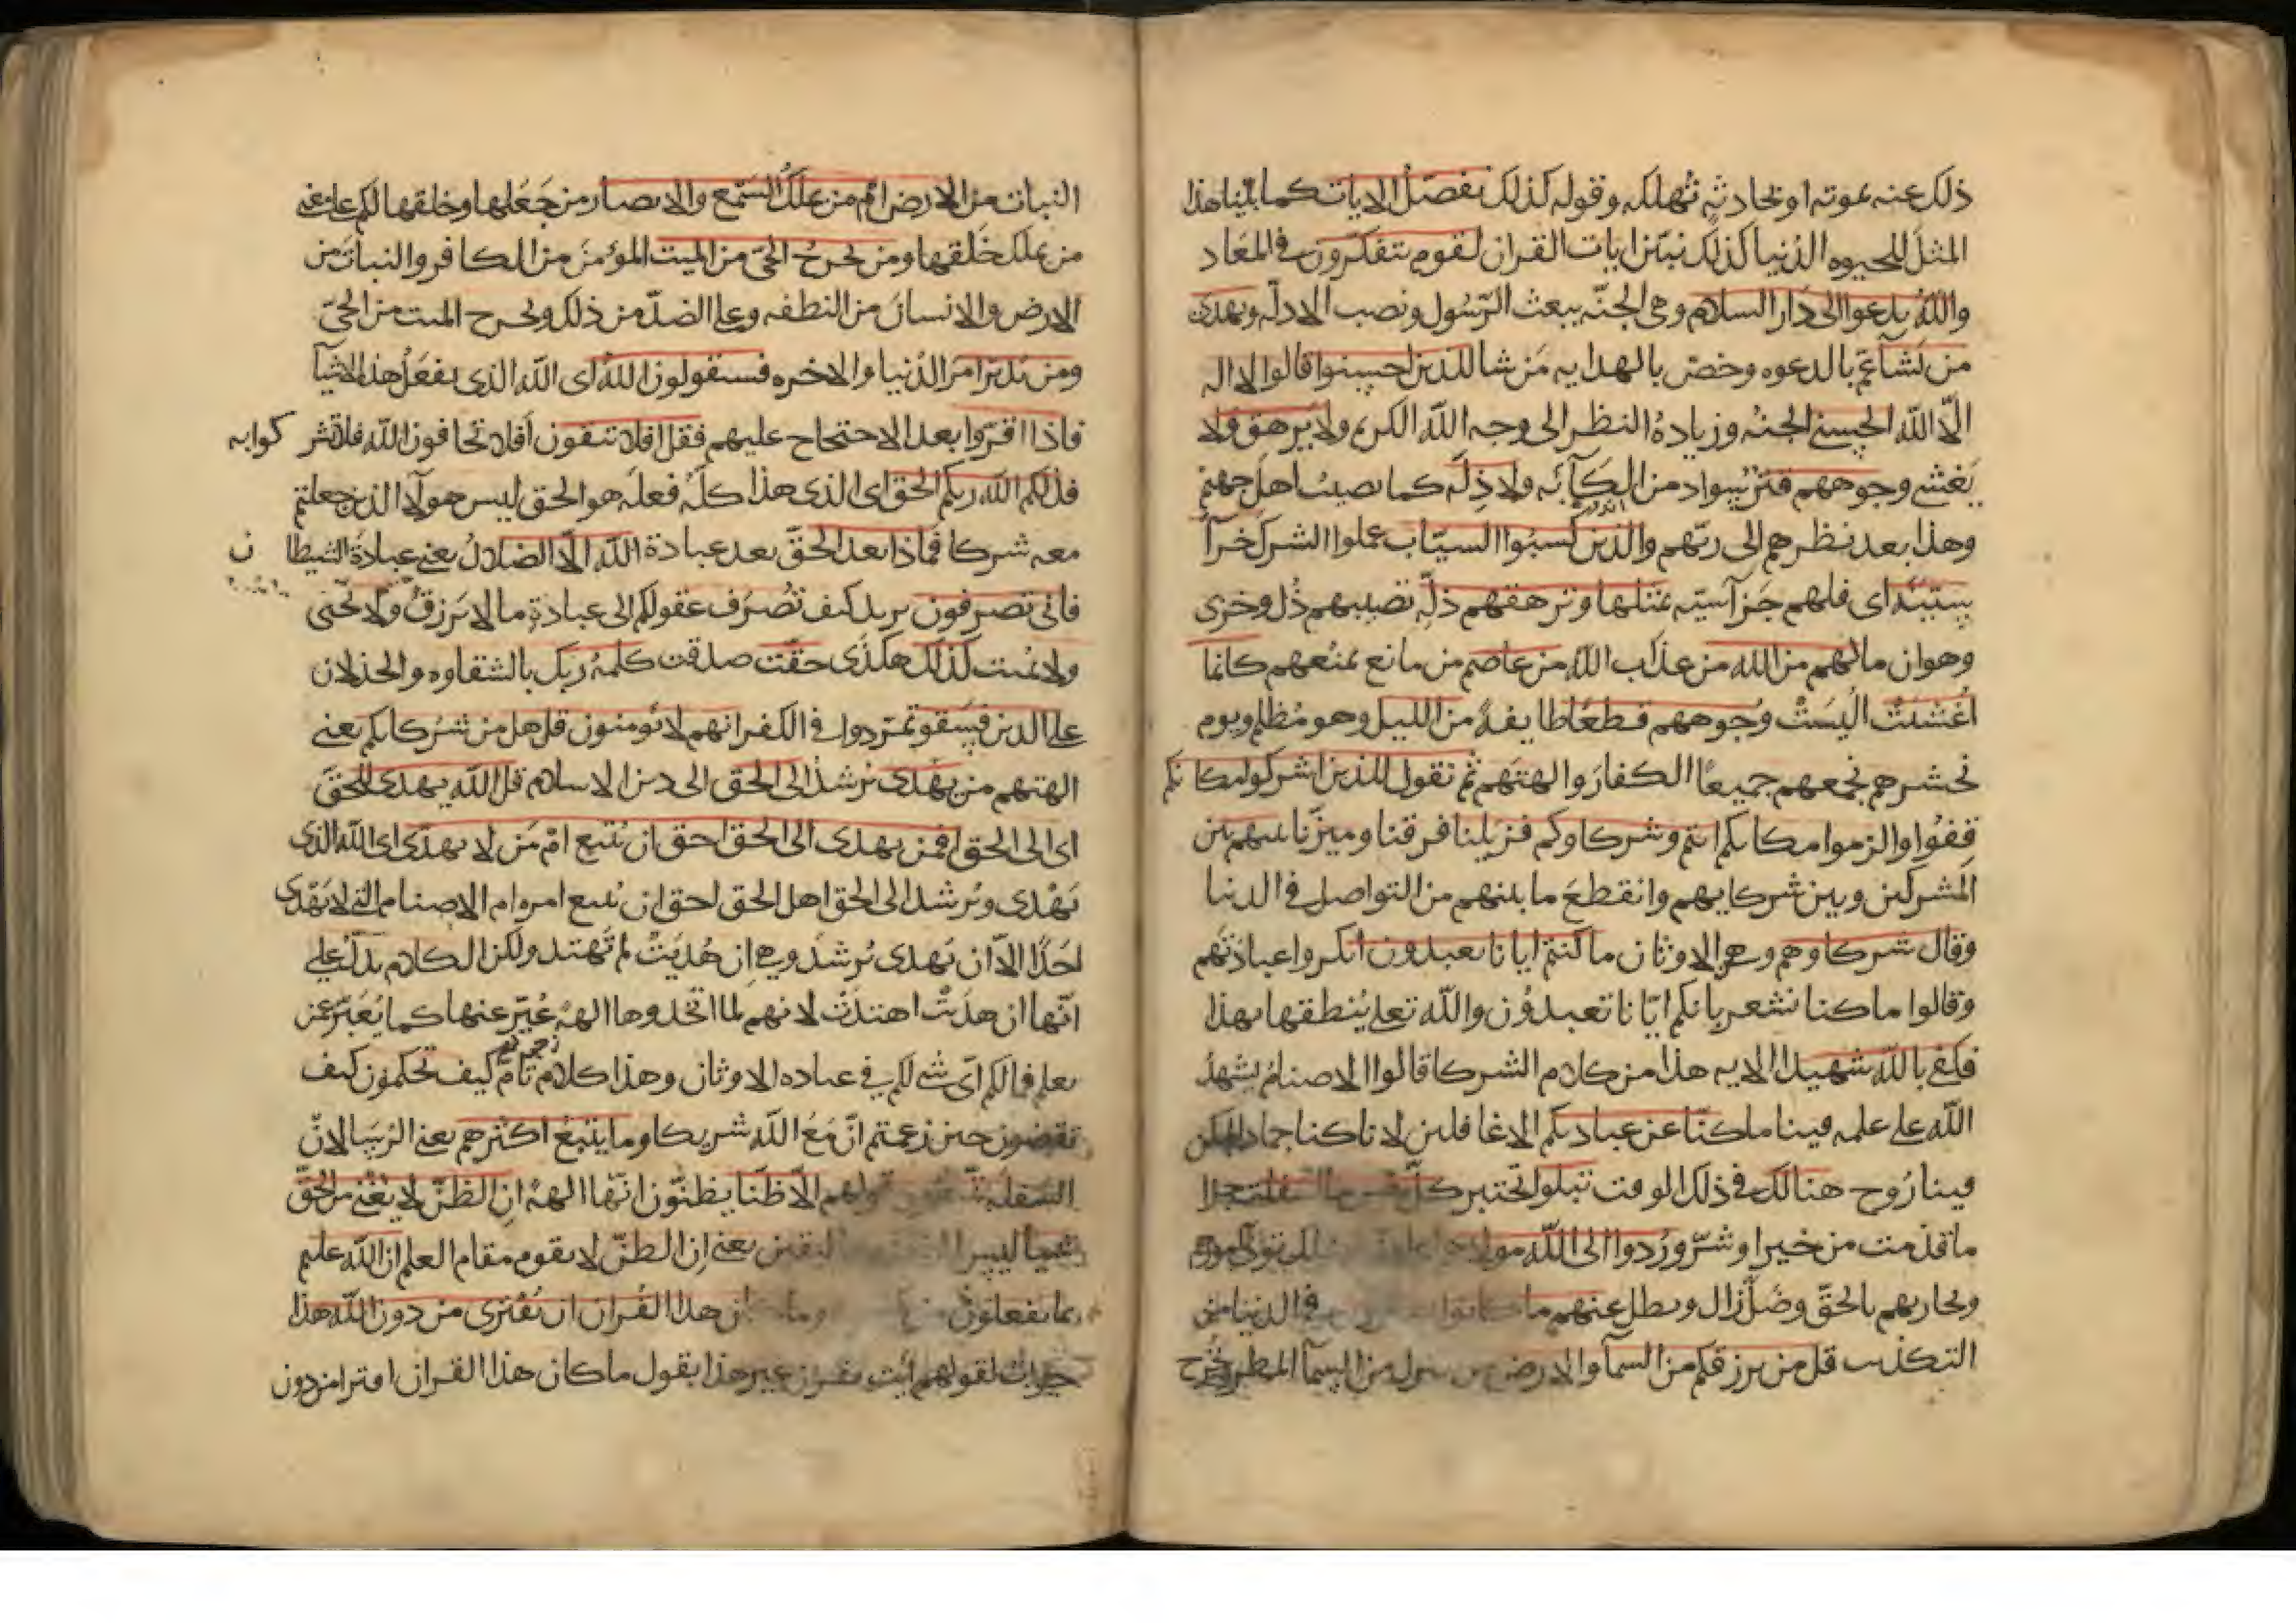 ذلك عنه بموته او بحادثة تهلكه وقوله كذلك نفصل الايات كما بينا هذا
المثل للحيوه الدنيا كذلك نبين ايات القران لقوم يتفكرون في المعاد
والله يدعوا الى دار السلام وهي الجنة ببعث الرسول ونصب الادلة ويهدى
من يشآ عم بالدعوه وخص بالهدايه من شا للذين احسنوا قالوا لا اله
الا الله الحسنى الجنه وزيادة النظر الى وجه الله الكريم ولا يرهق ولا
يغشى وجوههم قتر سواد من الكآبه ولا ذلة كما تصيب اهل جهنم
وهذا بعد نظرهم الى ربهم والذين كسبوا السيات عملوا الشرك جزآ
سيئة اى فلهم جزآ سيه بمثلها وترهقهم ذلة تصيبهم ذل وخزى
وهوان مالهم من الله من عذاب الله من عاصم من مانع يمنعهم كانما
اغشيت البست وجوههم قطعا طايفة من الليل وهو مظلم ويوم
نحشرهم نجمعهم جميعا الكفار والهتهم ثم نقول للذين اشركوا مكانكم
قفوا والزموا مكانكم انتم وشركاوكم فزيلنا فرقنا وميزنا بينهم بين
المشركين وبين شركايهم وانقطع ما بينهم من التواصل في الدنيا
وقال شركاوهم وهى الاوثان ما كنتم ايانا تعبدون انكروا عبادتهم
وقالوا ما كنا نشعر بانكم ايانا تعبدون والله تعلى ينطقها بهذا
فكفى بالله شهيدا الايه هذا من كلام الشركا قالوا الاصنام يشهد
الله على علمه فينا ما كنا عن عبادتكم الا غافلين لانا كنا جمادا لم يكن
فينا روح هنالك في ذلك الوقت تبلوا تختبر كل نفس ما اسلفت جزا
ما قدمت من خير او شر وردوا الى الله مولاهم الذى يتولى امورهم
ويجازيهم بالحق وضل زال وبطل عنهم ما كانوا يفترون في الدنيا من
التكذيب قل من يرزقكم من السمآ والارض من ينزل من السمآ المطر ويخرج
النبات من الارض ام من يملك السمع والابصار من جعلها وخلقها لكم على معنى
من يملك خلقها ومن يخرج الحى من الميت المؤمن من الكافر والنبات من
الارض والانسان من النطفه وعلى الضد من ذلك ويخرج الميت من الحى
ومن يدبر امر الدنيا والاخره فسيقولون الله اى الله الذى يفعل هذه الاشيآ
فاذا اقروا بعد الاحتجاج عليهم فقل افلا تتقون افلا تخافون الله فلا تشركوا به
فذلكم الله ربكم الحق اى الذى هذا كله فعله هو الحق ليس هولآ الذين جعلتم
معه شركا فماذا بعد الحق بعد عبادة الله الا الضلال يعنى عبادة الشيطان
فانى تصرفون يريد كيف تصرف عقولكم الى عبادة ما لا يرزق ولا يحيى
ولا يميت كذلك هكذى حقت صدقت كلمة ربك بالشقاوه والخذلان
على الذين فسقو تمردوا في الكفر انهم لا يومنون قل هل من شركايكم يعنى
الهتهم من يهدى يرشد الى الحق الى دين الاسلام قل الله يهدى للحق
اى الى الحق افمن يهدى الى الحق احق ان يتبع ام من لا يهدى اى الله الذى
يهدى ويرشد الى الحق اهل الحق احق ان يتبع امره ام الاصنام التى لا تهدى
احدا الا ان تهدى ترشد وهى ان هديت لم تهتد ولكن الكلام يدل على
انها ان هديت اهتدت لانهم لما اتخذوها الهة عبر عنها كما يعبر عن
يعلم فما لكم اى شى لكم في عباده الاوثان وهذا كلام تام كيف تحكمون كيف
تقضون حين زعمتم ان مع الله شريكا وما يتبع اكثرهم يعنى الرؤسا لان
السفلة يتبعون قولهم الا ظنا يظنون انها الهة ان الظن لا يغنى من الحق
شيا ليس اليقين يعنى ان الظن لا يقوم مقام العلم ان الله عليم
بما يفعلون من وما كان هذا القران ان يفترى من دون الله هذا
جواب لقولهم ايت بقران غير هذا يقول ما كان هذا القران افترا من دون